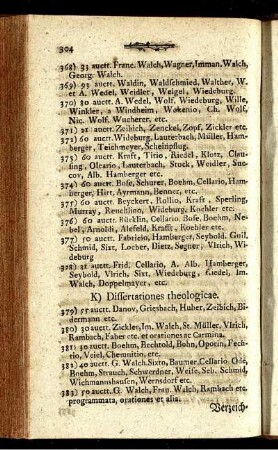 304
368) 93 auctt. Franc. Walch, Wagner, Imman. Walch,
Georg. Walch.
369) 93 auctt. Waldin, Waldschmied, Walther, W.
et A. Wedel, Weidler, Weigel, Wiedeburg.
370) 80 auctt. A. Wedel, Wolf, Wiedeburg, Wille,
Winkler, a Windheim, Wokenio, Ch. Wolf,
Nic. Wolf, Wucherer, etc.
371) 21 auctt. Zeibich, Zenckel, Zopf, Zickler etc.
372) 60 auctt. Wildeburg, Lauterbach, Müller, Ham-
berger, Teichmeyer, Schelhpflug.
373) 60 auctt. Kraft, Tirio, Riedel, Klotz, Clau-
fing, Oleario, Lauterbach, Stock, Weidler, Sue-
cov, Alb. Hamberger etc.
374) 60 auctt. Bose, Schurer, Boehm, Cellario, Ham-
berger, Hirt, Ayrmann, Benner, etc.
375) 60 auctt. Beyckert, Rollio, Kraft, Sperling,
Murray, Reuchlino, Wideburg, Koehler etc.
376) 60 auctt. Rücklin, Cellario, Bose, Boehm, Ne-
bel, Arnoldi, Alefeld, Krafft, Koehler etc.
377) 50 auctt. Fabricio, Hamberger, Seybold, Guil,
Schmid, Sixt, Locher, Bietz, Segner, Vlrich, Wie-
deburg
378) 31 auctt. Frid. Cellario, A. Alb. Hamberger,
Seybold, Vlrich, Sixt, Wiedeburg, Riedel, Im.
Walch, Doppelmayer, etc.
K) Dissertationes theologicae.
379) 55 auctt. Danov, Griesbach, Huber, Zeibich, Bi-
dermann etc.
380) 30 auctt. Zickler, Im. Walch, St. Müller, Vlrich,
Rambach, Faber etc. et orationes ac Carmina.
381) 50 auctt. Boehm, Bechtold, Bohn, Opotin, Fech-
tio, Voiel, Chemnitio, etc.
382) 40 auctt. G. Walch, Sixto, Baumer, Cellario,
Boehm, Strauch, Schwerdner, Weise, Seb. Schmid,
Wichmannshausen, Wernsdorf etc.
383) 50 auctt. G. Walch, Franc. Walch, Rambach etc.
programmata, orationes et alia.
Verzeich-